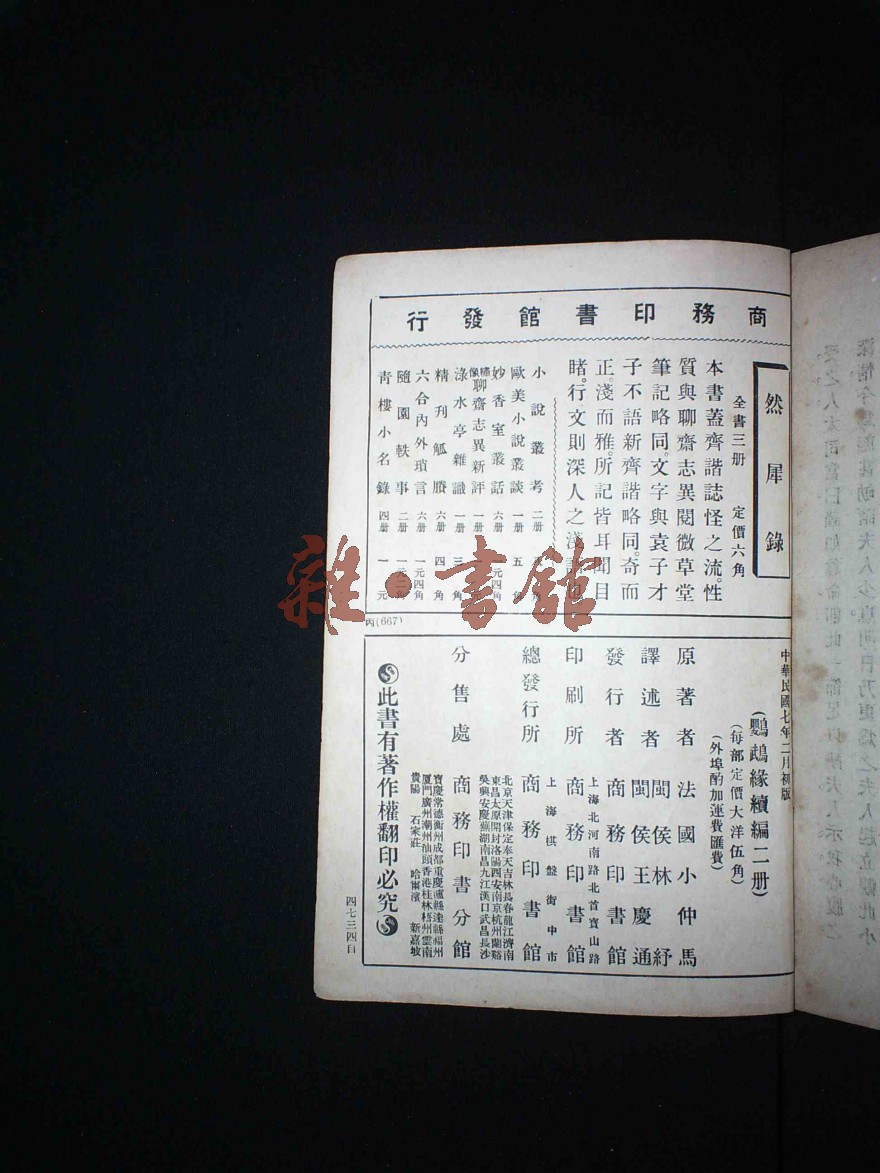 商務印書館發行
然犀錄
全書三册 定價六角
本書蓋齊諧誌怪之流。性
質與聊齋志異閱微草堂
筆記略同。文字與袁子才
子不語新齊諧略同。奇而
正。淺而雅。所記皆耳聞目
睹。行文則深人之淺
小說叢考 二册 角
歐美小說叢談 一册 五角
妙香室叢話 六册 一元四角
繡像聊齋志異新評 一册
淥水亭雜識 一册 三角
精刊觚賸 六册 四角
六合內外瑣言 六册 一元四角
隨園軼事 二册 一元二角
青樓小名錄 四册 一元
丙(667)
中華民國七年二月初版
(鸚鵡緣續編二册)
(每部定價大洋伍角)
(外埠酌加運費匯費)
原著者 法國小仲馬
譯述者 閩侯林紓
閩侯王慶通
發行者 商務印書館
上海北河南路北首寶山路
印刷所 商務印書館
上海棋盤街中市
總發行所 商務印書館
北京天津保定奉天吉林長春龍江濟南
東昌太原開封洛陽西安南京杭州蘭谿
吳興安慶蕪湖南昌九江漢口武昌長沙
分售處 商務印書分館
寶慶常德衡州成都重慶瀘縣達縣福州
廈門廣州潮州汕頭香港桂林梧州雲南
貴陽 石家莊 哈爾濱 新嘉坡
此書有著作權翻印必究
四七三四自
雜·書館